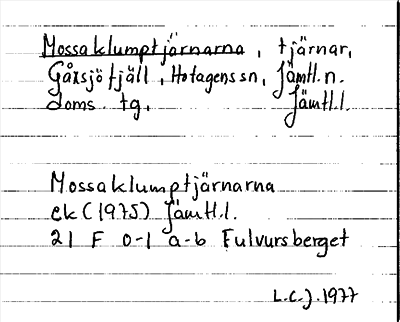 Mossaklumptjärnarna, tjärnar,
Gåxsjöfjäll, Hotagens sn, Jämtl. n.
doms. tg, Jämtl.l.
Mossaklumptjärnarna
ek (1975) Jämtl.l.
21 F 0-1 a-b Fulvursberget
L.C.J. 1977